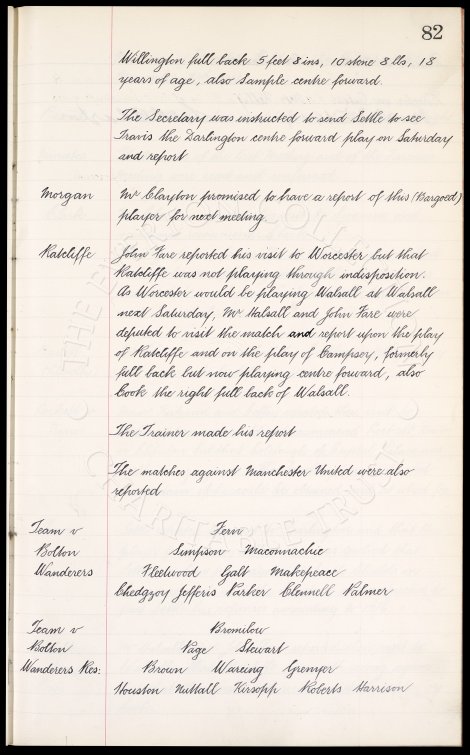 82
Willington full back 5 feet 8 ins, 10 stone 8 lbs, 18
years of age, also Sample centre forward.
The Secretary was instructed to send Settle to see
Travis the Darlington centre forward play on Saturday
and report
Morgan
Mr Clayton promised to have a report of this (Bargoed)
player for next meeting.
Ratcliffe
John Fare reported his visit to Worcester but that
Ratcliffe was not playing through indisposition.
As Worcester would be playing Walsall at Walsall
next Saturday, Mr Halsall and John Fare were
deputed to visit the match and report upon the play
of Ratcliffe and on the play of Campsey, formerly
full back but now playing centre forward, also
Cook the right full back of Walsall.
The Trainer made his report
The matches against Manchester United were also
reported
Team v Fern
Bolton Simpson Maconnachie
Wanderers Fleetwood Galt Makepeace
Chedgzoy Jefferis Parker Clennell Palmer
Team v Bromilow
Bolton Page Stewart
Wanderers Res: Brown Wareing Grenyer
Houston Nuttall Kirsopp Roberts Harrison
THE EVERTON COLLECTION
CHARITABLE TRUST